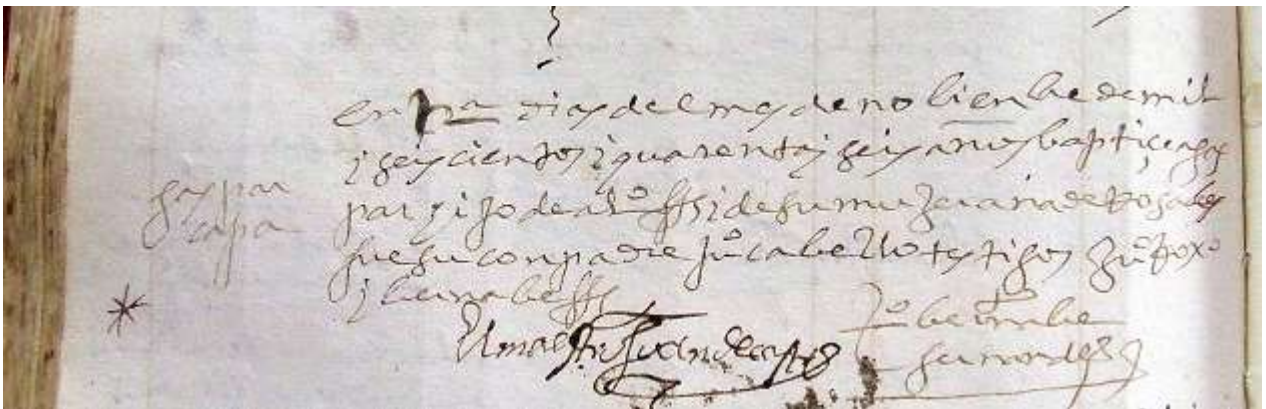 gaspar
capa
en dias del mes de nobienbre de mil
i seiscientos i quarenta i seis años baptiçe a gas
par hijo de alº ffs i de su muger ana de rosales
fue su conpadre juº cabello testigos juº
i bernabe ffs
El maestro Juan de castro
juº bernabe
fernandes